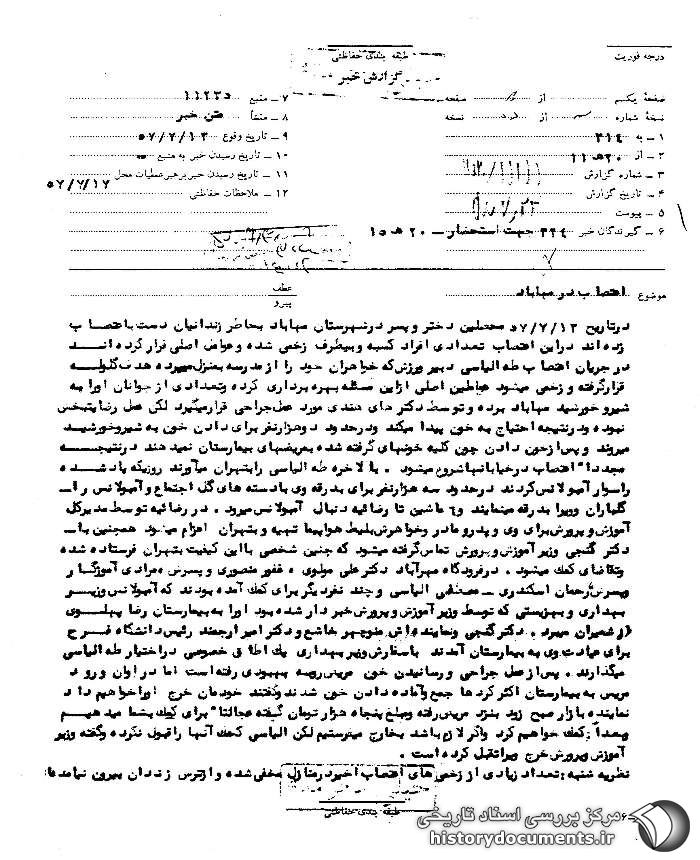 طبقه بندی حفاظتی
درجه فوریت
گزارش خبر
صفحهٔ یکم از صفحه
۷ ـ منبع ۱۱۲۳۵
نسخهٔ شماره از نسخه
۸ ـ منشأ متن خبر
۱ ـ به ۳۱۴
۹ ـ تاریخ وقوع ۵۷/۷/۱۳
۲ ـ از ۲۰ ه‍ ۱۱
۱۰ ـ تاریخ رسیدن خبر به منبع
۳ ـ شماره گزارش
۱۱ ـ تاریخ رسیدن خبر برهبر عملیات محل ۵۷/۷/۱۷
۴ ـ تاریخ گزارش
۱۲ ـ ملاحظات حفاظتی
۵ ـ پیوست
۶ ـ گیرندگان خبر ۳۲۴ جهت استحضار ـ ۲۰ ه‍ ۱۵
موضوع اعتصاب در مهاباد
عطف
پیرو
درتاریخ ۵۷/۷/۱۳ محصلین دختر و پسر درشهرستان مهاباد بخاطر زندانیان دست باعتصاب
زده اند دراین اعتصاب تعدادی افراد کسبه وبیطرف زخمی شده وعوامل اصلی فرار کرده اند
در جریان اعتصاب طه الیاسی دبیر ورزش که خواهران خود را از مدرسه بمنزل میبرده هدف گلوله
قرارگرفته و زخمی میشود عاملین اصلی ازاین مسئله بهره برداری کرده وتعدادی از جوانان اورا به
شیروخورشید مهاباد برده و توسط دکتر های هندی مورد عمل جراحی قرارمیگیرد لکن عمل رضایتبخش
نبوده ودرنتیجه احتیاج به خون پیدا میکند ودرحدود دوهزارنفر برای دادن خون به شیروخورشید
میروند و پس ازخون دادن چون کلیه خونهای گرفته شده بمریضهای بیمارستان نمیدهند درنتیجه
مجددا" اعتصاب درخیابانها شروع میشود . بالاخره طه الیاسی رابتهران میآورند روزیکه یادشده
راسوار آمبولانس کردند درحدود سه هزارنفر برای بدرقه وی بادسته های گل اجتماع و آمبولانس را
گلباران وویرا بدرقه مینمایند و ماشین تا رضائیه دنبال آمبولانس میرود . در رضائیه توسط مدیرکل
آموزش وپرورش برای وی و پدرومادر وخواهرش بلیط هواپیما تهیه و بتهران اعزام میشود همچنین با
دکتر گنجی وزیر آموزش وپرورش تماس گرفته میشود که چنین شخصی بااین کیفیت بتهران فرستاده شده
وتقاضای کمک میشود . درفرودگاه مهرآباد دکتر علی مولوی ، غفور منصوری و پسرش ، مرادی آموزگار و
وپسرش رحمان اسکندری ـ مصطفی الیاسی و چند نفر دیگر برای کمک آمده بودند که آمبولانس وزیر
بهداری و بهزیستی که توسط وزیر آموزش وپرورش خبر دار شده بود اورا به بیمارستان رضا پهلوی
شمیران میبرد . دکتر گنجی ونماینده اش منوچهر خاشع و دکتر امیر ارجمند رئیس دانشگاه فرح
برای عیادت وی به بیمارستان آمدند باسفارش وزیر بهداری یک اطاق خصوصی دراختیار طه الیاسی
میگذارند . پس ازعمل جراحی و رسانیدن خون مریض روبه بهبودی رفته است اما در اوان ورود
مریض به بیمارستان اکثر کردها جمع وآماده دادن خون شدند وگفتند خودمان خرج اوراخواهیم داد
نماینده بازار صبح زود بنزد مریض رفته ومبلغ پنجاه هزارتومان گرفته عجالتا" برای کمک بشما میدهیم
وبعداً کمک خواهیم کرد واگر لازم باشد بخارج میفرستیم لکن الیاسی کمک آنها را قبول نکرده وگفته وزیر
آموزش وپرورش خرج ویرا تقبل کرده است .
نظریه شنبه : تعداد زیادی از زخمی های اعتصاب اخیر درمنازل مخفی شده و ازترس زندان بیرون نیامده‌اند
طبقه بندی حفاظتی
مرکز بررسی اسناد تاریخی
historydocuments.ir